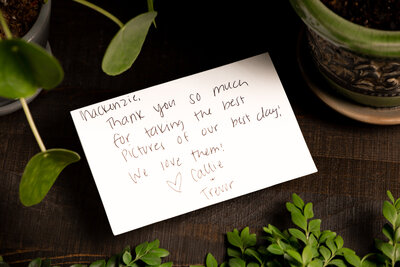 Mackenzie,
Thank you so much
for taking the best
pictures of our best day!
We love them!
♡ Callie
+
Trevor